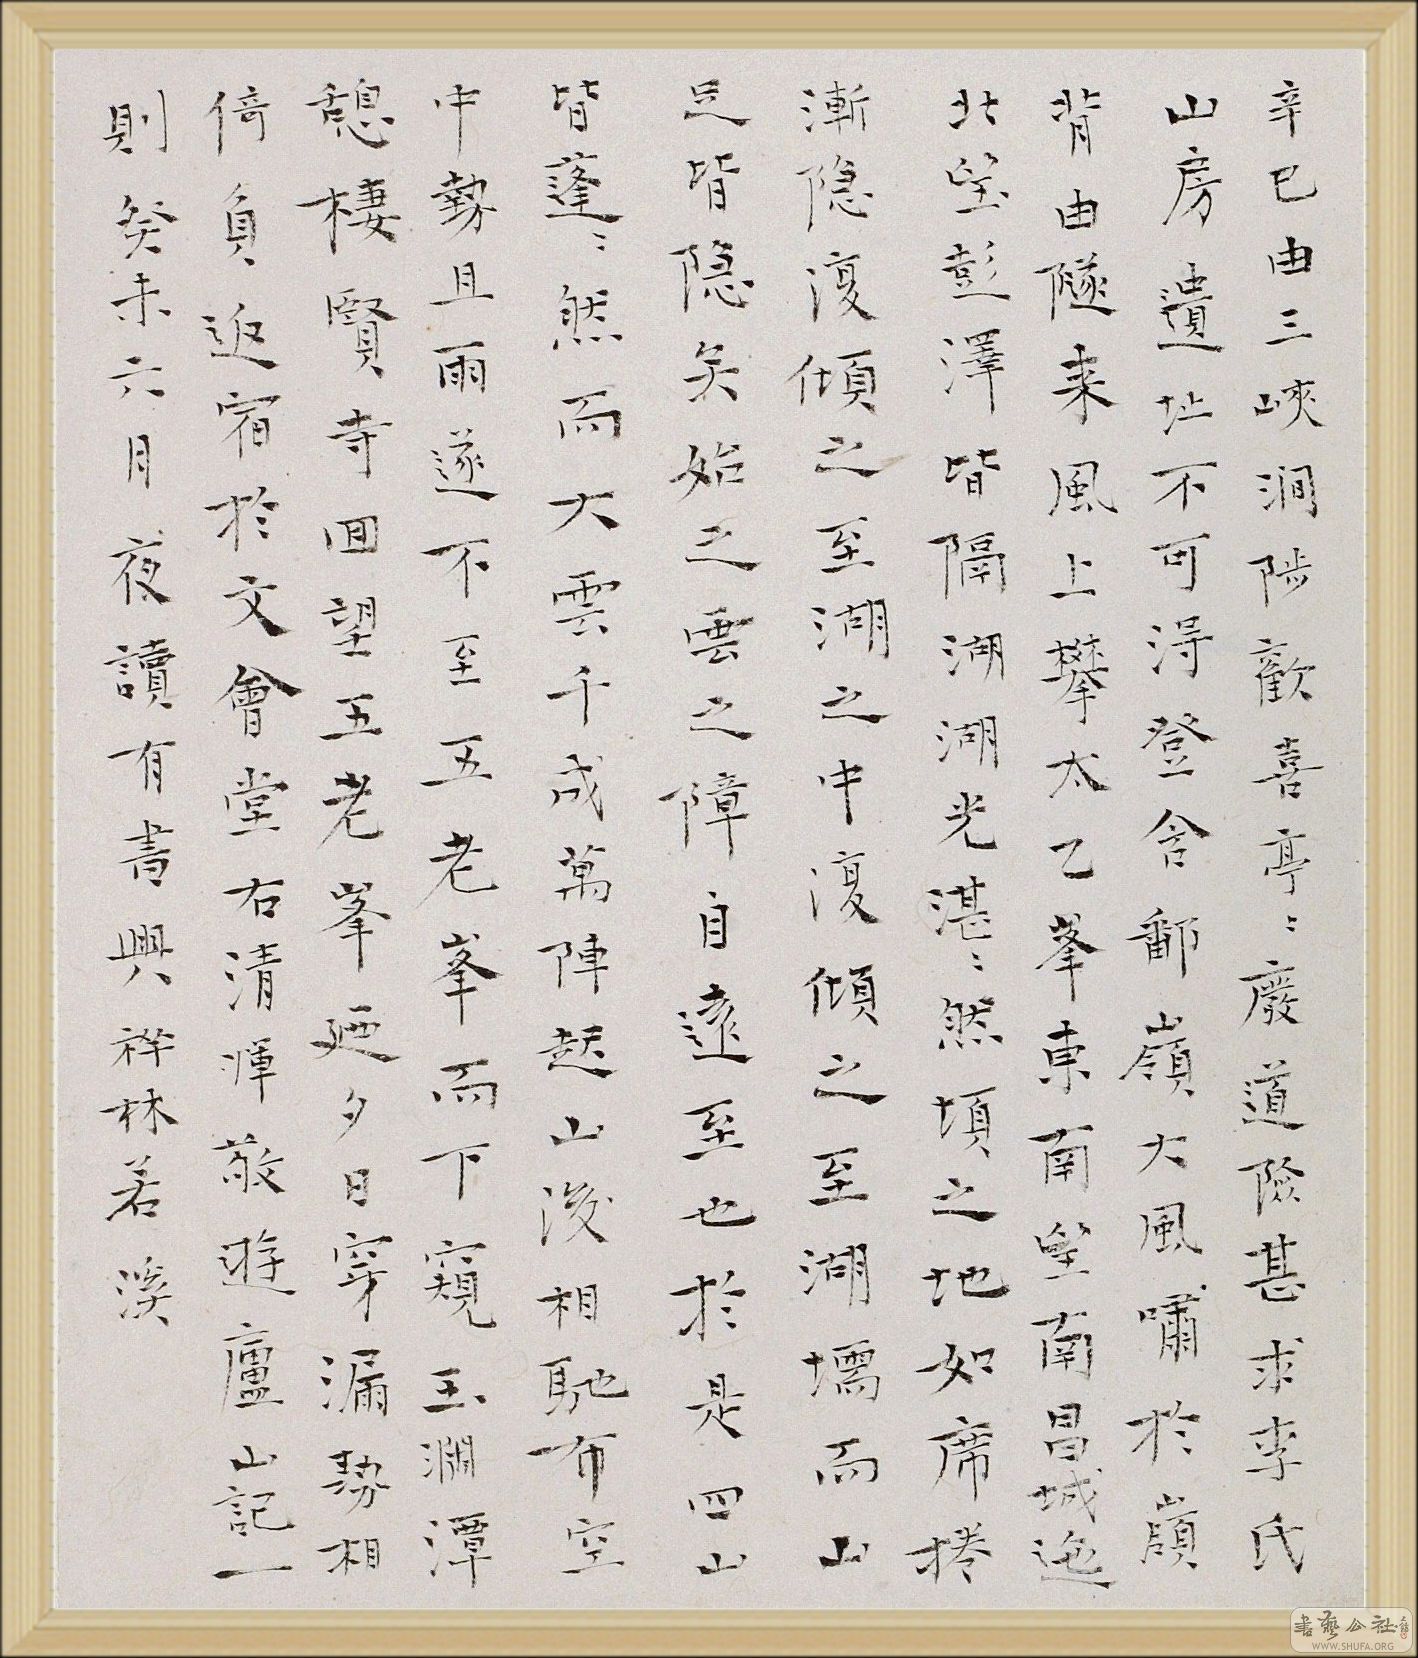 辛巳由三峽澗陟歡喜亭亭廢道險甚求李氏
山房遺址不可得登含鄱嶺大風嘯於嶺
背由隧来風上攀太乙峯東南望南昌城迤
北望彭澤皆隔湖湖光湛湛然頃之地如席捲
漸隐復傾之至湖之中復傾之至湖壖而山
足皆隐矣始之雲之障自遠至也於是四山
皆蓬蓬然而大雲千成萬陣起山後相馳布空
中勢且雨遂不至五老峯而下窺玉澗潭
憩棲賢寺回望五老峯廼夕日穿漏勢相
倚負返宿於文會堂右清惲敬遊廬山記一
則癸未六月夜讀有書興祥林若溪
書藝公社
WWW.SHUFA.ORG